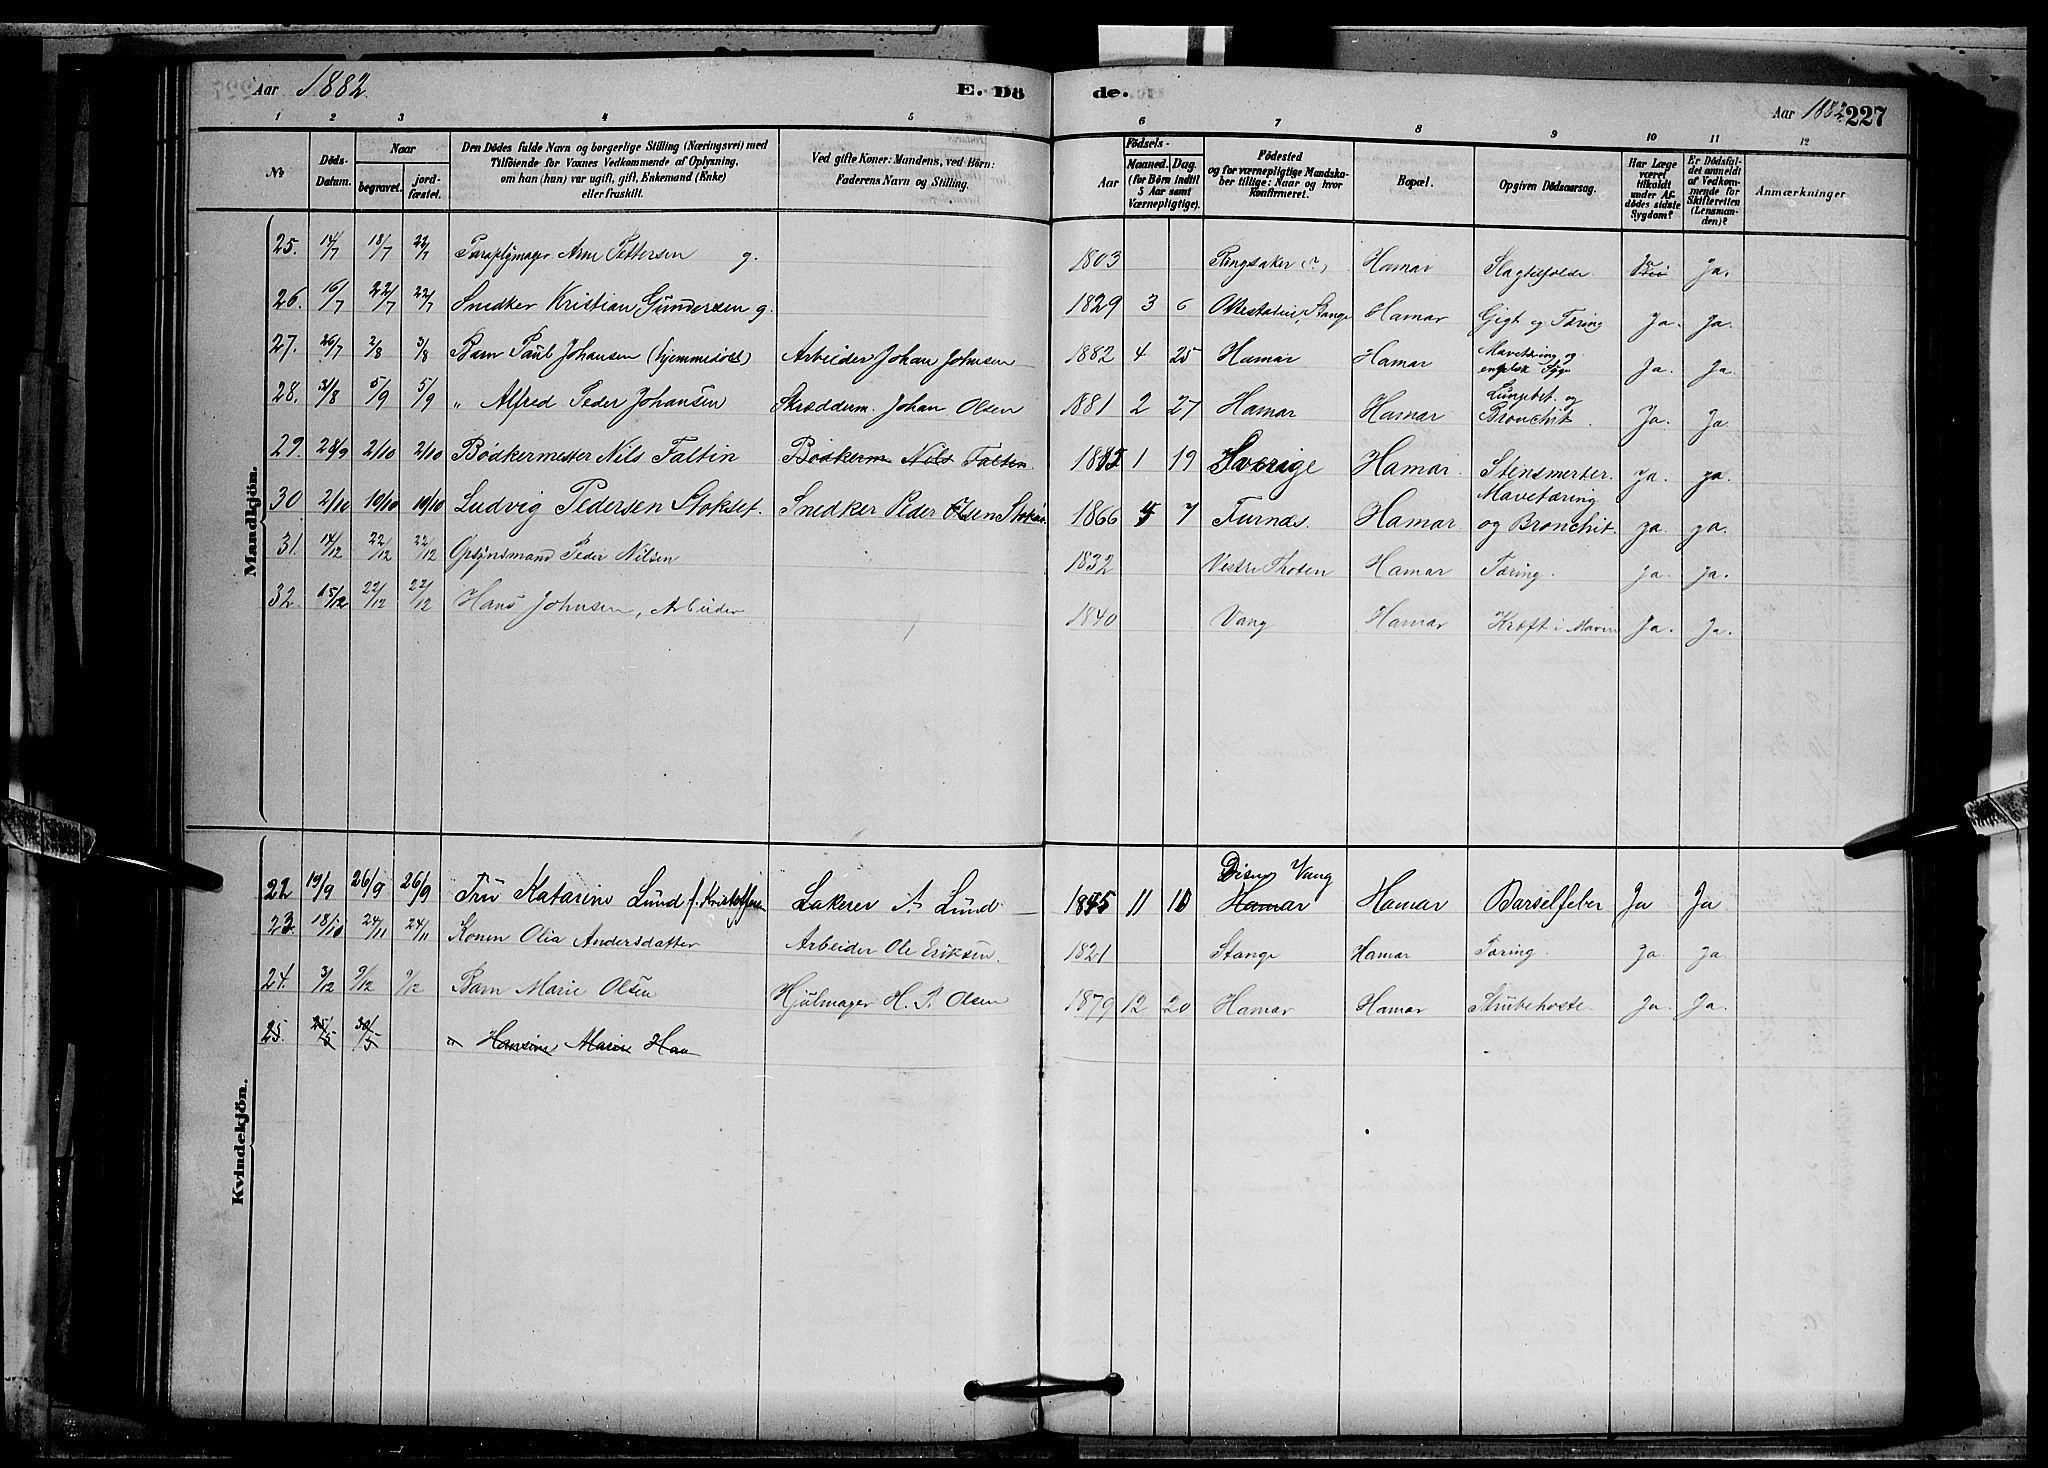 Aar 1882. E. Dö de. Aar 1882. 227
1 2 3 4 5 6 7 8 9 10 11 12
No
Döds-Datum.
Naar
begravet. jordfæstet.
Den Dödes fulde Navn og borgerlige Stilling (Næringsvei) med
Tilföiende for Voxnes Vedkommende af Oplysning,
om han (hun) var ugift, gift, Enkemand (Enke)
eller fraskilt.
Ved gifte Koner: Mandens, ved Börn:
Faderens Navn og Stilling.
Födsels-
Aar Maaned. Dag.
(for Börn indtil
5 Aar samt
Værnepligtige).
Födested
og for værnepligtige Mandska-
ber tillige: Naar og hvor
konfirmeret.
Bopæl.
Opgiven Dödsaarsag.
Har Læge
været
tilkaldt
under Af-
dödes sidste
Sygdom?
Er Dödsfal-
det anmeldt
af Vedkom-
mende for
Skifteretten
(Lensman-
den)?
Anmærkninger
Mandkjön.
25. 14/7 18/7 22/7 Paraplymager Arne Pettersen g. 1803 Ringsaker (?) Hamar Slagtilfælde Ja Ja.
26. 16/7 22/7 22/7 Snedker Kristian Gundersen g. 1829 3 6 Stange Hamar Gigt og Tæring Ja. Ja.
27. 26/7 2/8 3/8 Barn Paul Johansen (hjemmedøbt) Arbeider Johan Johnsen 1882 4 25 Hamar Hamar Mavetæring og engelsk Syge Ja. Ja.
28. 31/8 5/9 5/9 " Alfred Peder Johansen Skrædderm. Johan Olsen 1881 2 27 Hamar Hamar Lungebet. og Bronchit. Ja. Ja
29. 28/9 2/10 2/10 Bødkermester Nils Faltin Bødkerm. Nils Faltin. 1 19 Sverige Hamar. Stensmerter. ja. ja.
30 2/10 10/10 10/10 Ludvig Pedersen Stokset. Snedker Peder Olsen 1866 5 7 Furnæs. Hamar Mavetæring og Bronchit. ja. ja.
31. 14/12 22/12 22/12 Opsynsmand Peder Nilsen 1832 Vestre Thoten Hamar Tæring. ja. Ja.
32. 15/12 22/12 22/12 Hans Johnsen, Arbeider 1840 Vang Hamar Kræft i Maven Ja. Ja.
Kvindekjön.
22 19/9 26/9 26/9 Fru Katarine Lund f. Kristoffersen Lakerer A Lund 11 10 Vang Hamar Hamar Barselfeber Ja Ja
23. 18/10 24/11 24/11 Konen Olia Andersdatter Arbeider Ole Eriksen. 1821 Stange Hamar Tæring. Ja Ja.
24. 3/12 9/12 9/12 Barn Marie Olsen Hjulmager H. P. Olsen 1879 12 20 Hamar Hamar Strubehoste. Ja. Ja.
25. 25/5 30/5 " Hansine Marie Han